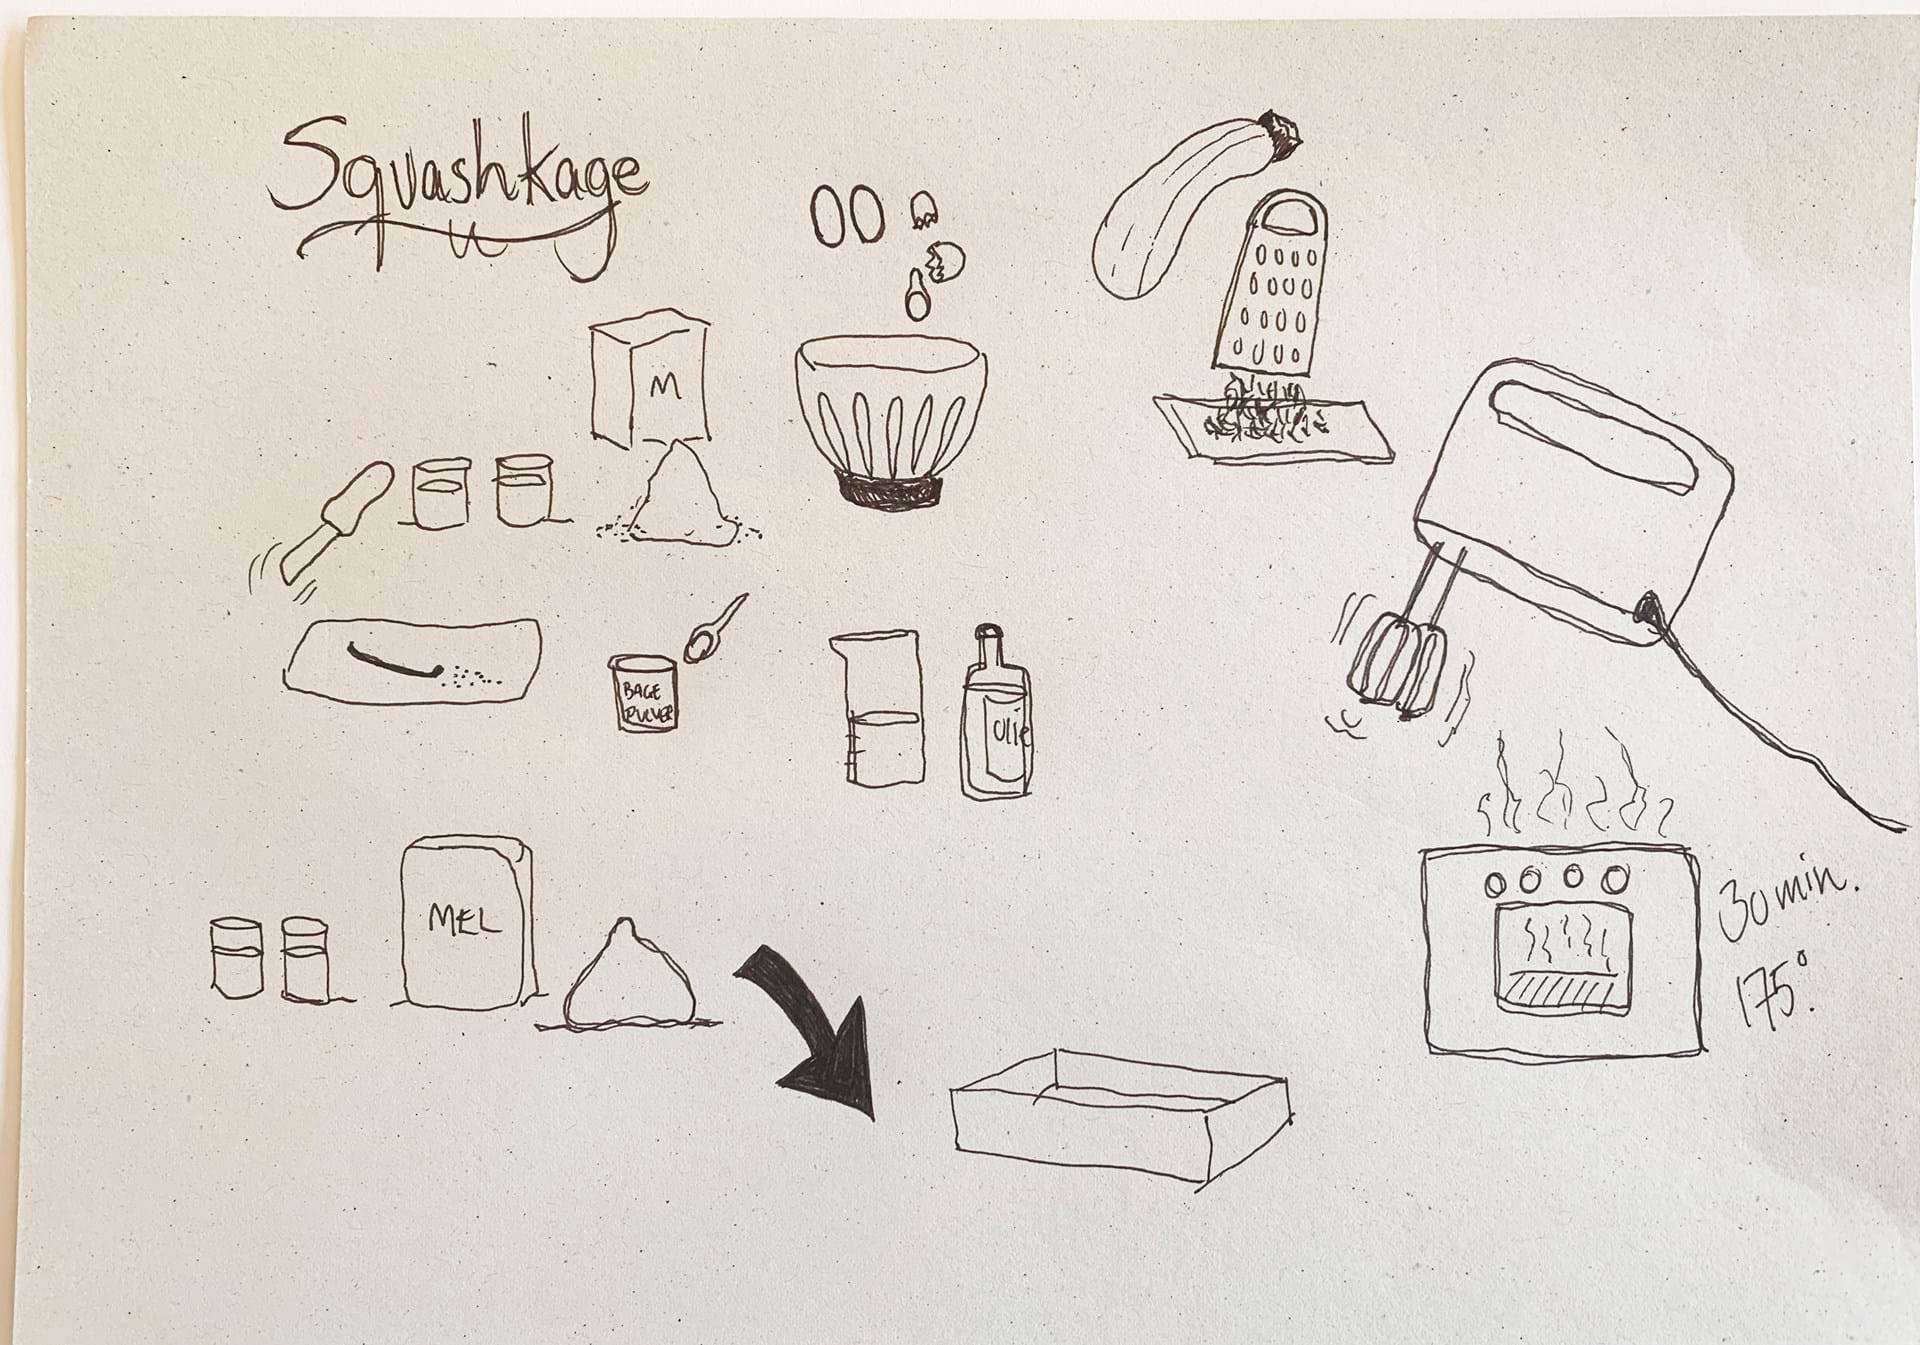 Squashkage
M
BAGE
PULVER
Olie
MEL
30 min.
175°